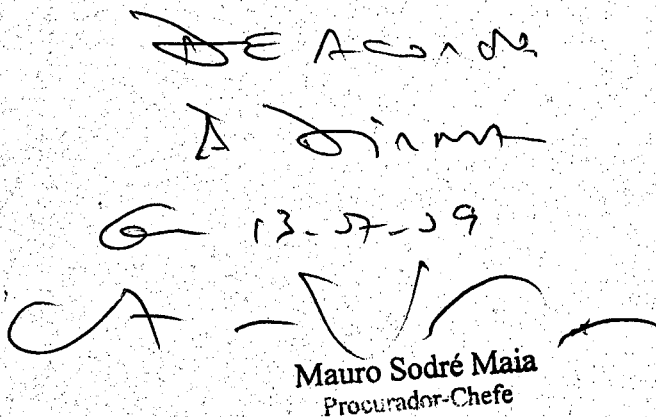 DE Acordo
À Dirma
Em 13-07-09
Mauro Sodré Maia
Procurador-Chefe